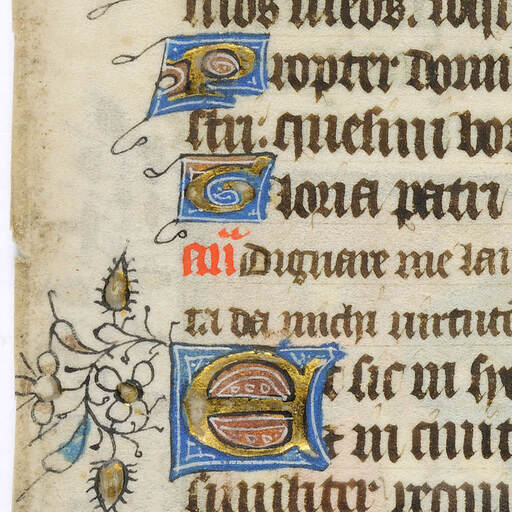 meos meos. dist
Propter domu
stri: quesiui bo
Gloria patri
añ Dignare me lau
ta da michi uirtute
Et sic in sy
Et in ciuit
similiter requi